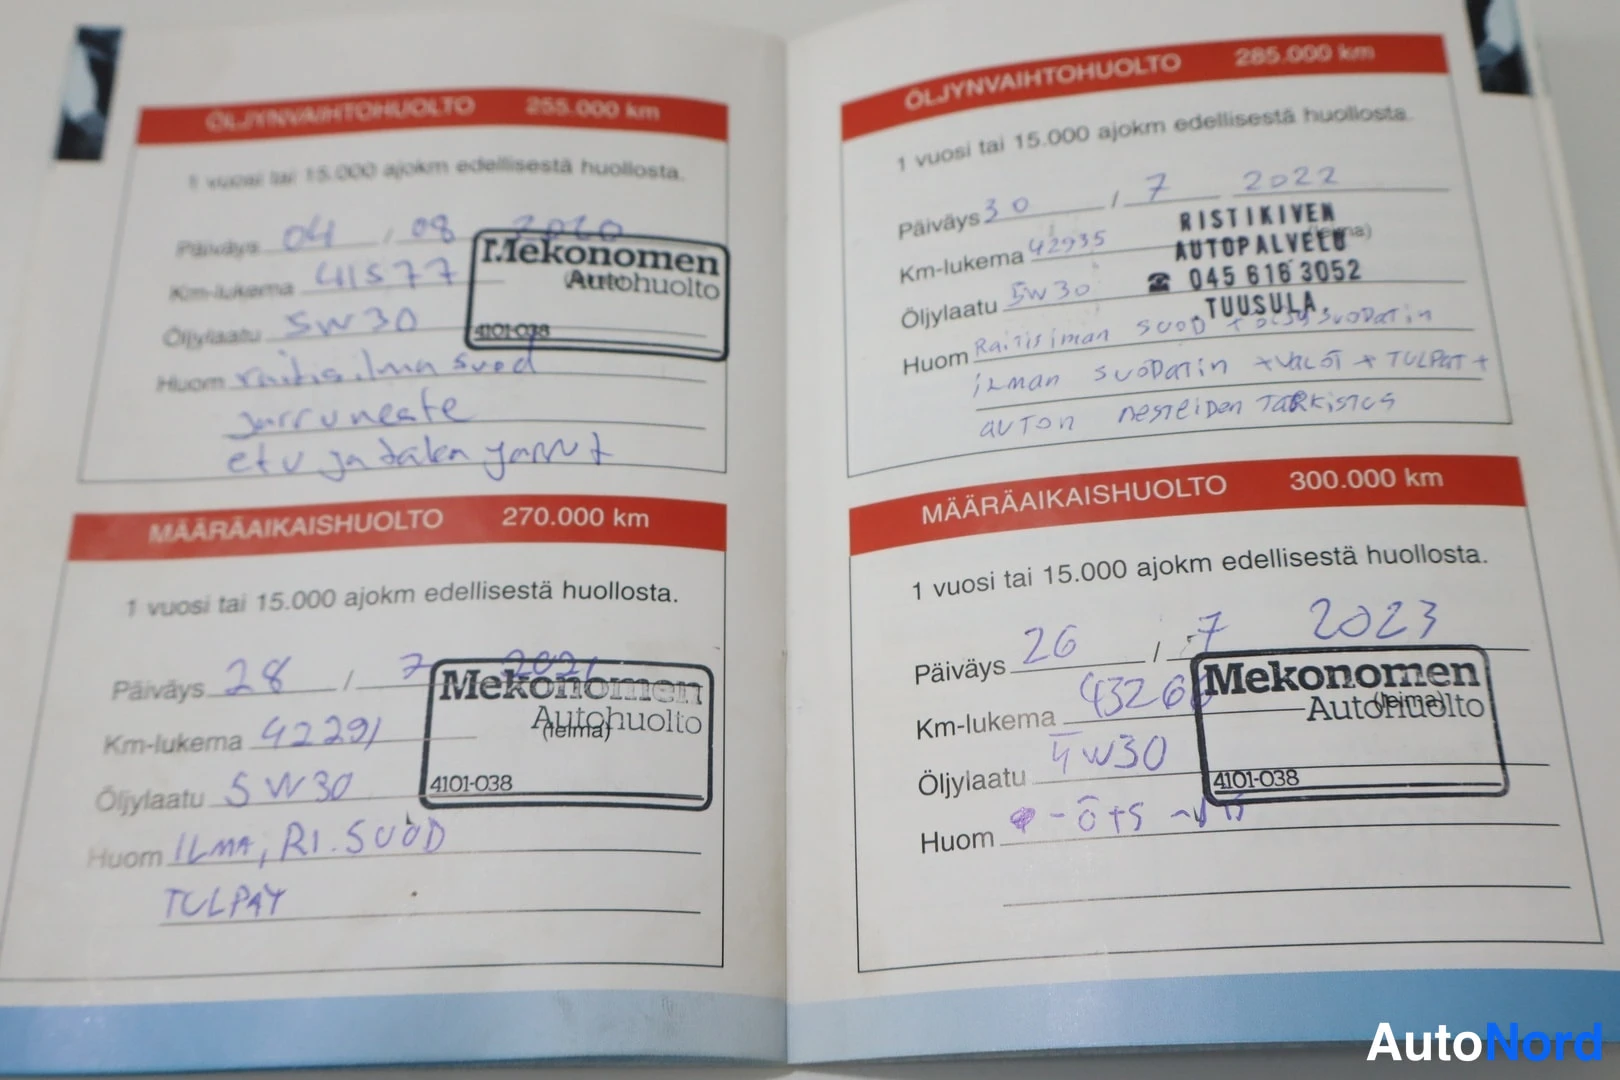 ÖLJYNVAIHTOHUOLTO 255.000 km
1 vuosi tai 15.000 ajokm edellisestä huollosta.
Päiväys 04 / 08 2020
Km-lukema 41577
Öljylaatu 5W30
Mekonomen
Autohuolto
4101-038
Huom raitisilma suod
jarruneste
etu ja taka jarrut
MÄÄRÄAIKAISHUOLTO 270.000 km
1 vuosi tai 15.000 ajokm edellisestä huollosta.
Päiväys 28 / 7 2021
Km-lukema 42291
Öljylaatu 5W30
Mekonomen
Autohuolto
(leima)
4101-038
Huom ILMA, RI.SUOD
TULPAT
ÖLJYNVAIHTOHUOLTO 285.000 km
1 vuosi tai 15.000 ajokm edellisestä huollosta.
Päiväys 30 / 7 2022
Km-lukema 42935
Öljylaatu 5W30
RISTIKIVEN
AUTOPALVELU
☎ 045 616 3052
TUUSULA.
Huom Raitisiman SUOD + öljysuodatin
ilman suodatin + valot + TULPAT +
auton nesteiden TARKISTUS
MÄÄRÄAIKAISHUOLTO 300.000 km
1 vuosi tai 15.000 ajokm edellisestä huollosta.
Päiväys 26 / 7 2023
Km-lukema
Öljylaatu
Mekonomen
(leima)
Autohuolto
4101-038
Huom
AutoNord